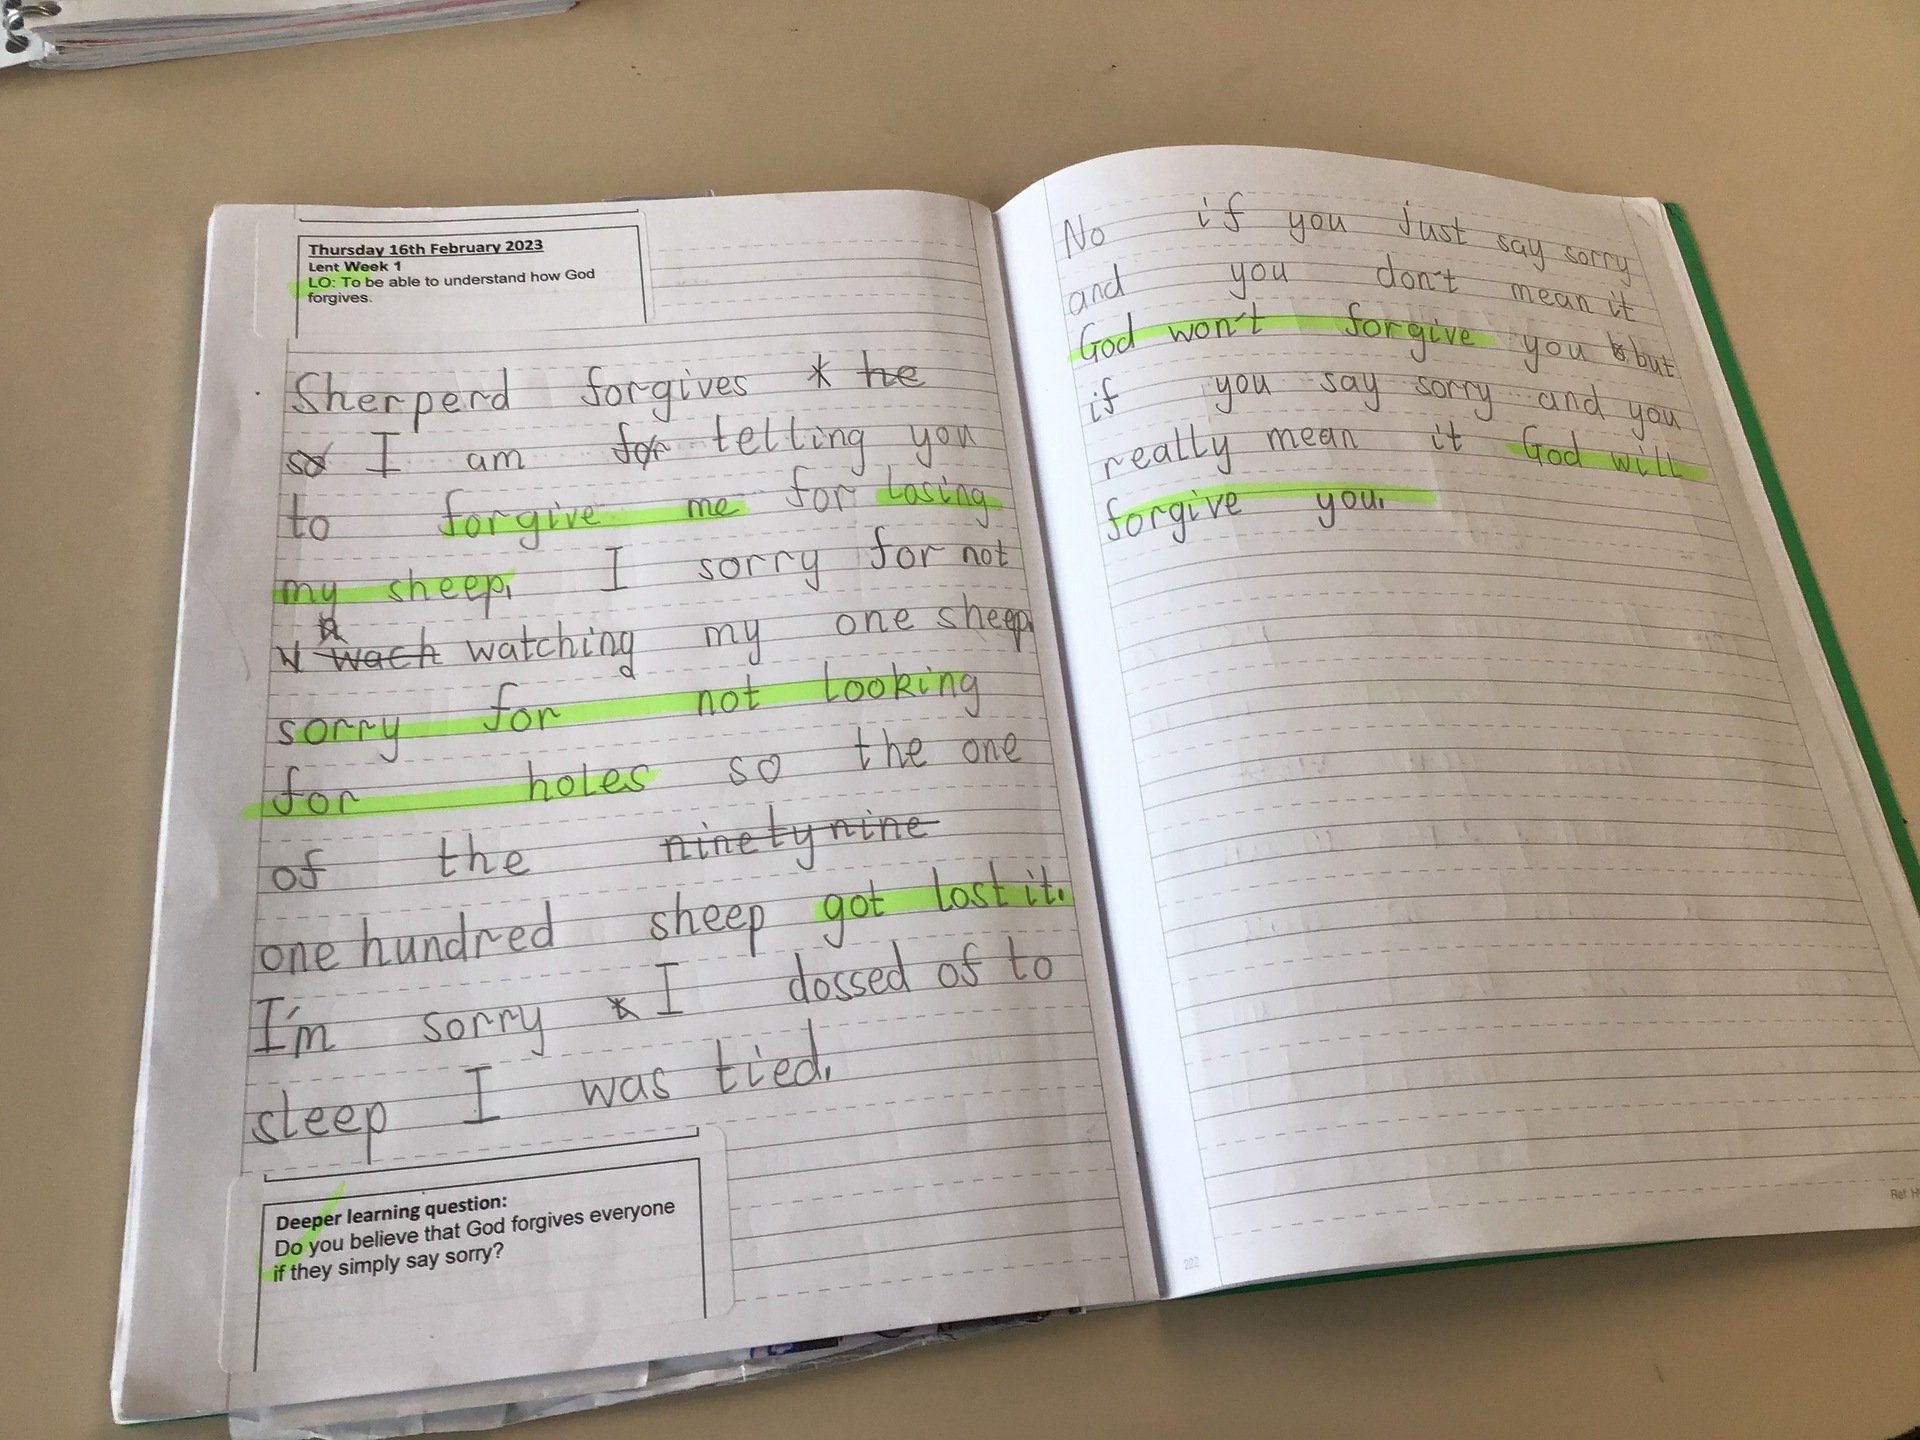 Thursday 16th February 2023
Lent Week 1
LO: To be able to understand how God
forgives.
Sherperd forgives he
so I am for telling you
to forgive me for losing
my sheep. I sorry for not
wach watching my one sheep.
sorry for not looking
for holes so the one
of the ninety nine
one hundred sheep got lost it.
I'm sorry I dossed of to
sleep I was tied.
Deeper learning question:
Do you believe that God forgives everyone
if they simply say sorry?
No if you just say sorry
and you don't mean it
God won't forgive you but
if you say sorry and you
really mean it God will
forgive you.
222